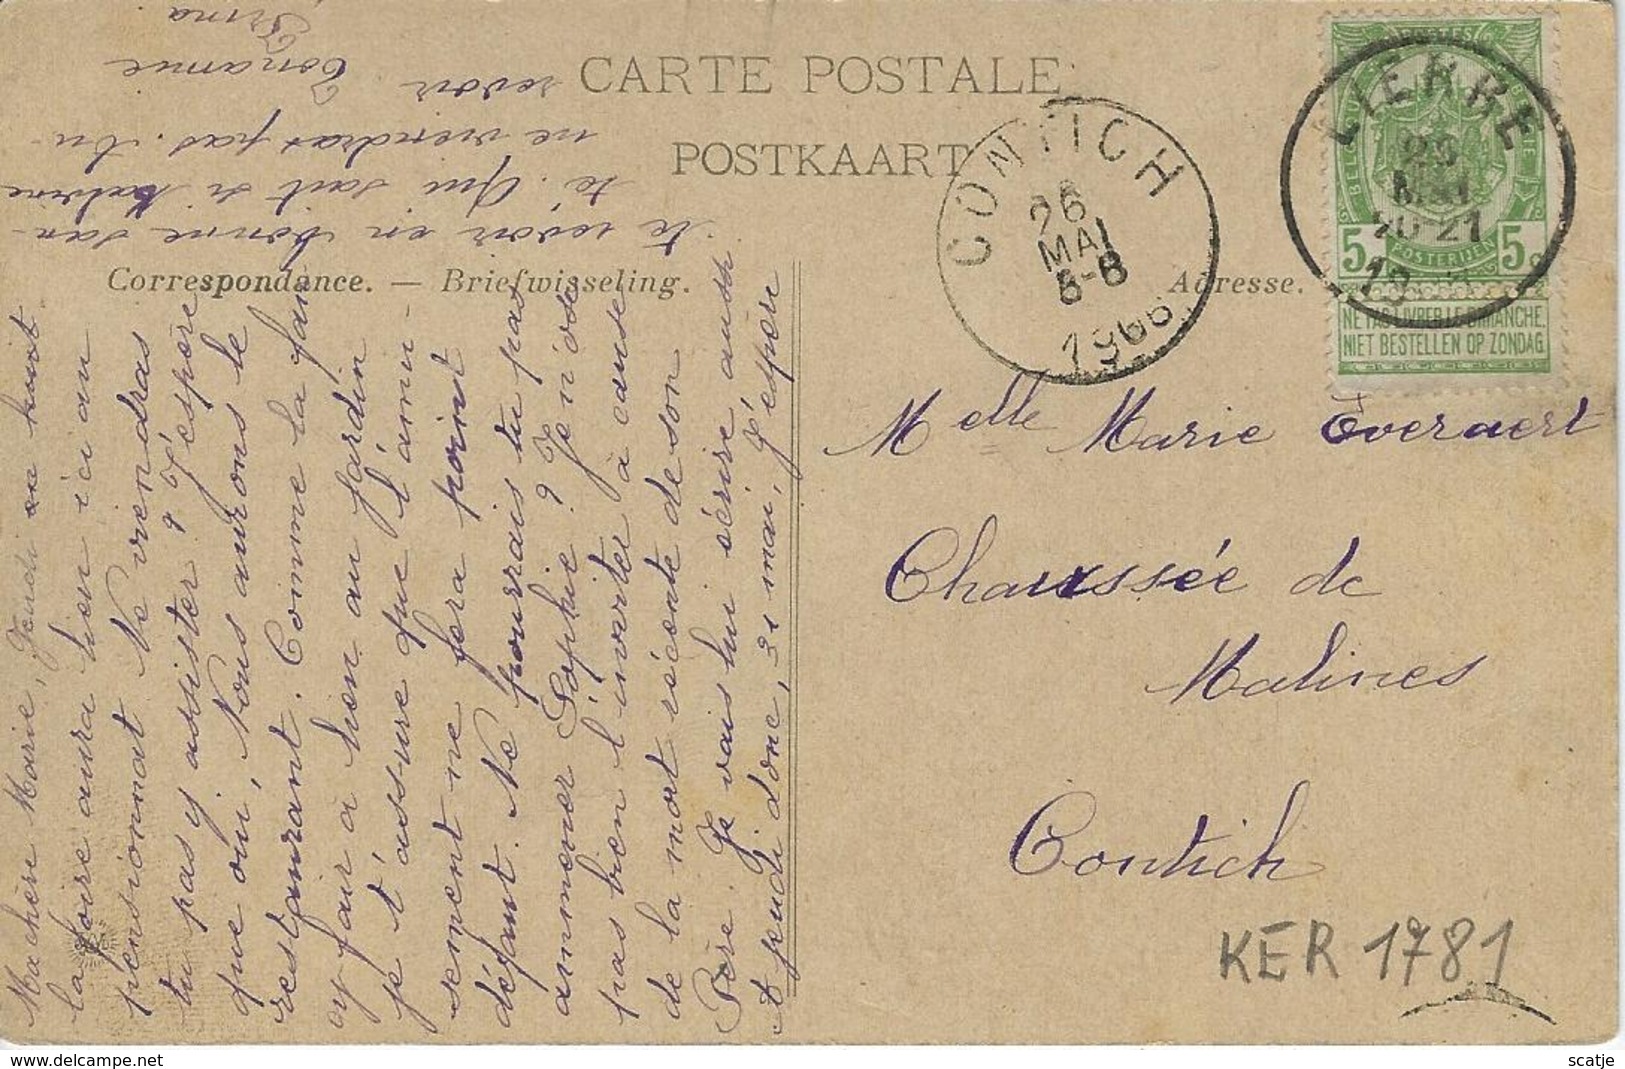 CARTE POSTALE
POSTKAART
Correspondance. — Briefwisseling.
Adresse.
CONTICH
26
MAI
8-8
1906
LIERRE
25
MAI
20-21
19
5c
5c
POSTERIJEN
NE PAS LIVRER LE DIMANCHE.
NIET BESTELLEN OP ZONDAG
Melle Marie Everaert
Chaussée de
Malines
Contich
KER 1781
Ma chère Marie, Jeudi en huit
la foire aura lieu ici au
pensionnat. Ne viendras
tu pas y assister? J'espère
que oui, Nous aurons le
restaurant. Comme la fan
cy fair a lieu au jardin
je t'assure que l'amu-
sement ne fera point
défaut. Ne pourrais tu pas
ammener Sophie? Je n'ose
pas bien l'inviter à cause
de la mort récente de son
Père. Je vais lui écrire aussi
A jeudi donc, 31 mai, J'espère
te revoir en bonne san-
té. Qui sait si
ne viendras pas. Au
revoir
Ton amie
Irma.
scatje
delcampe.net